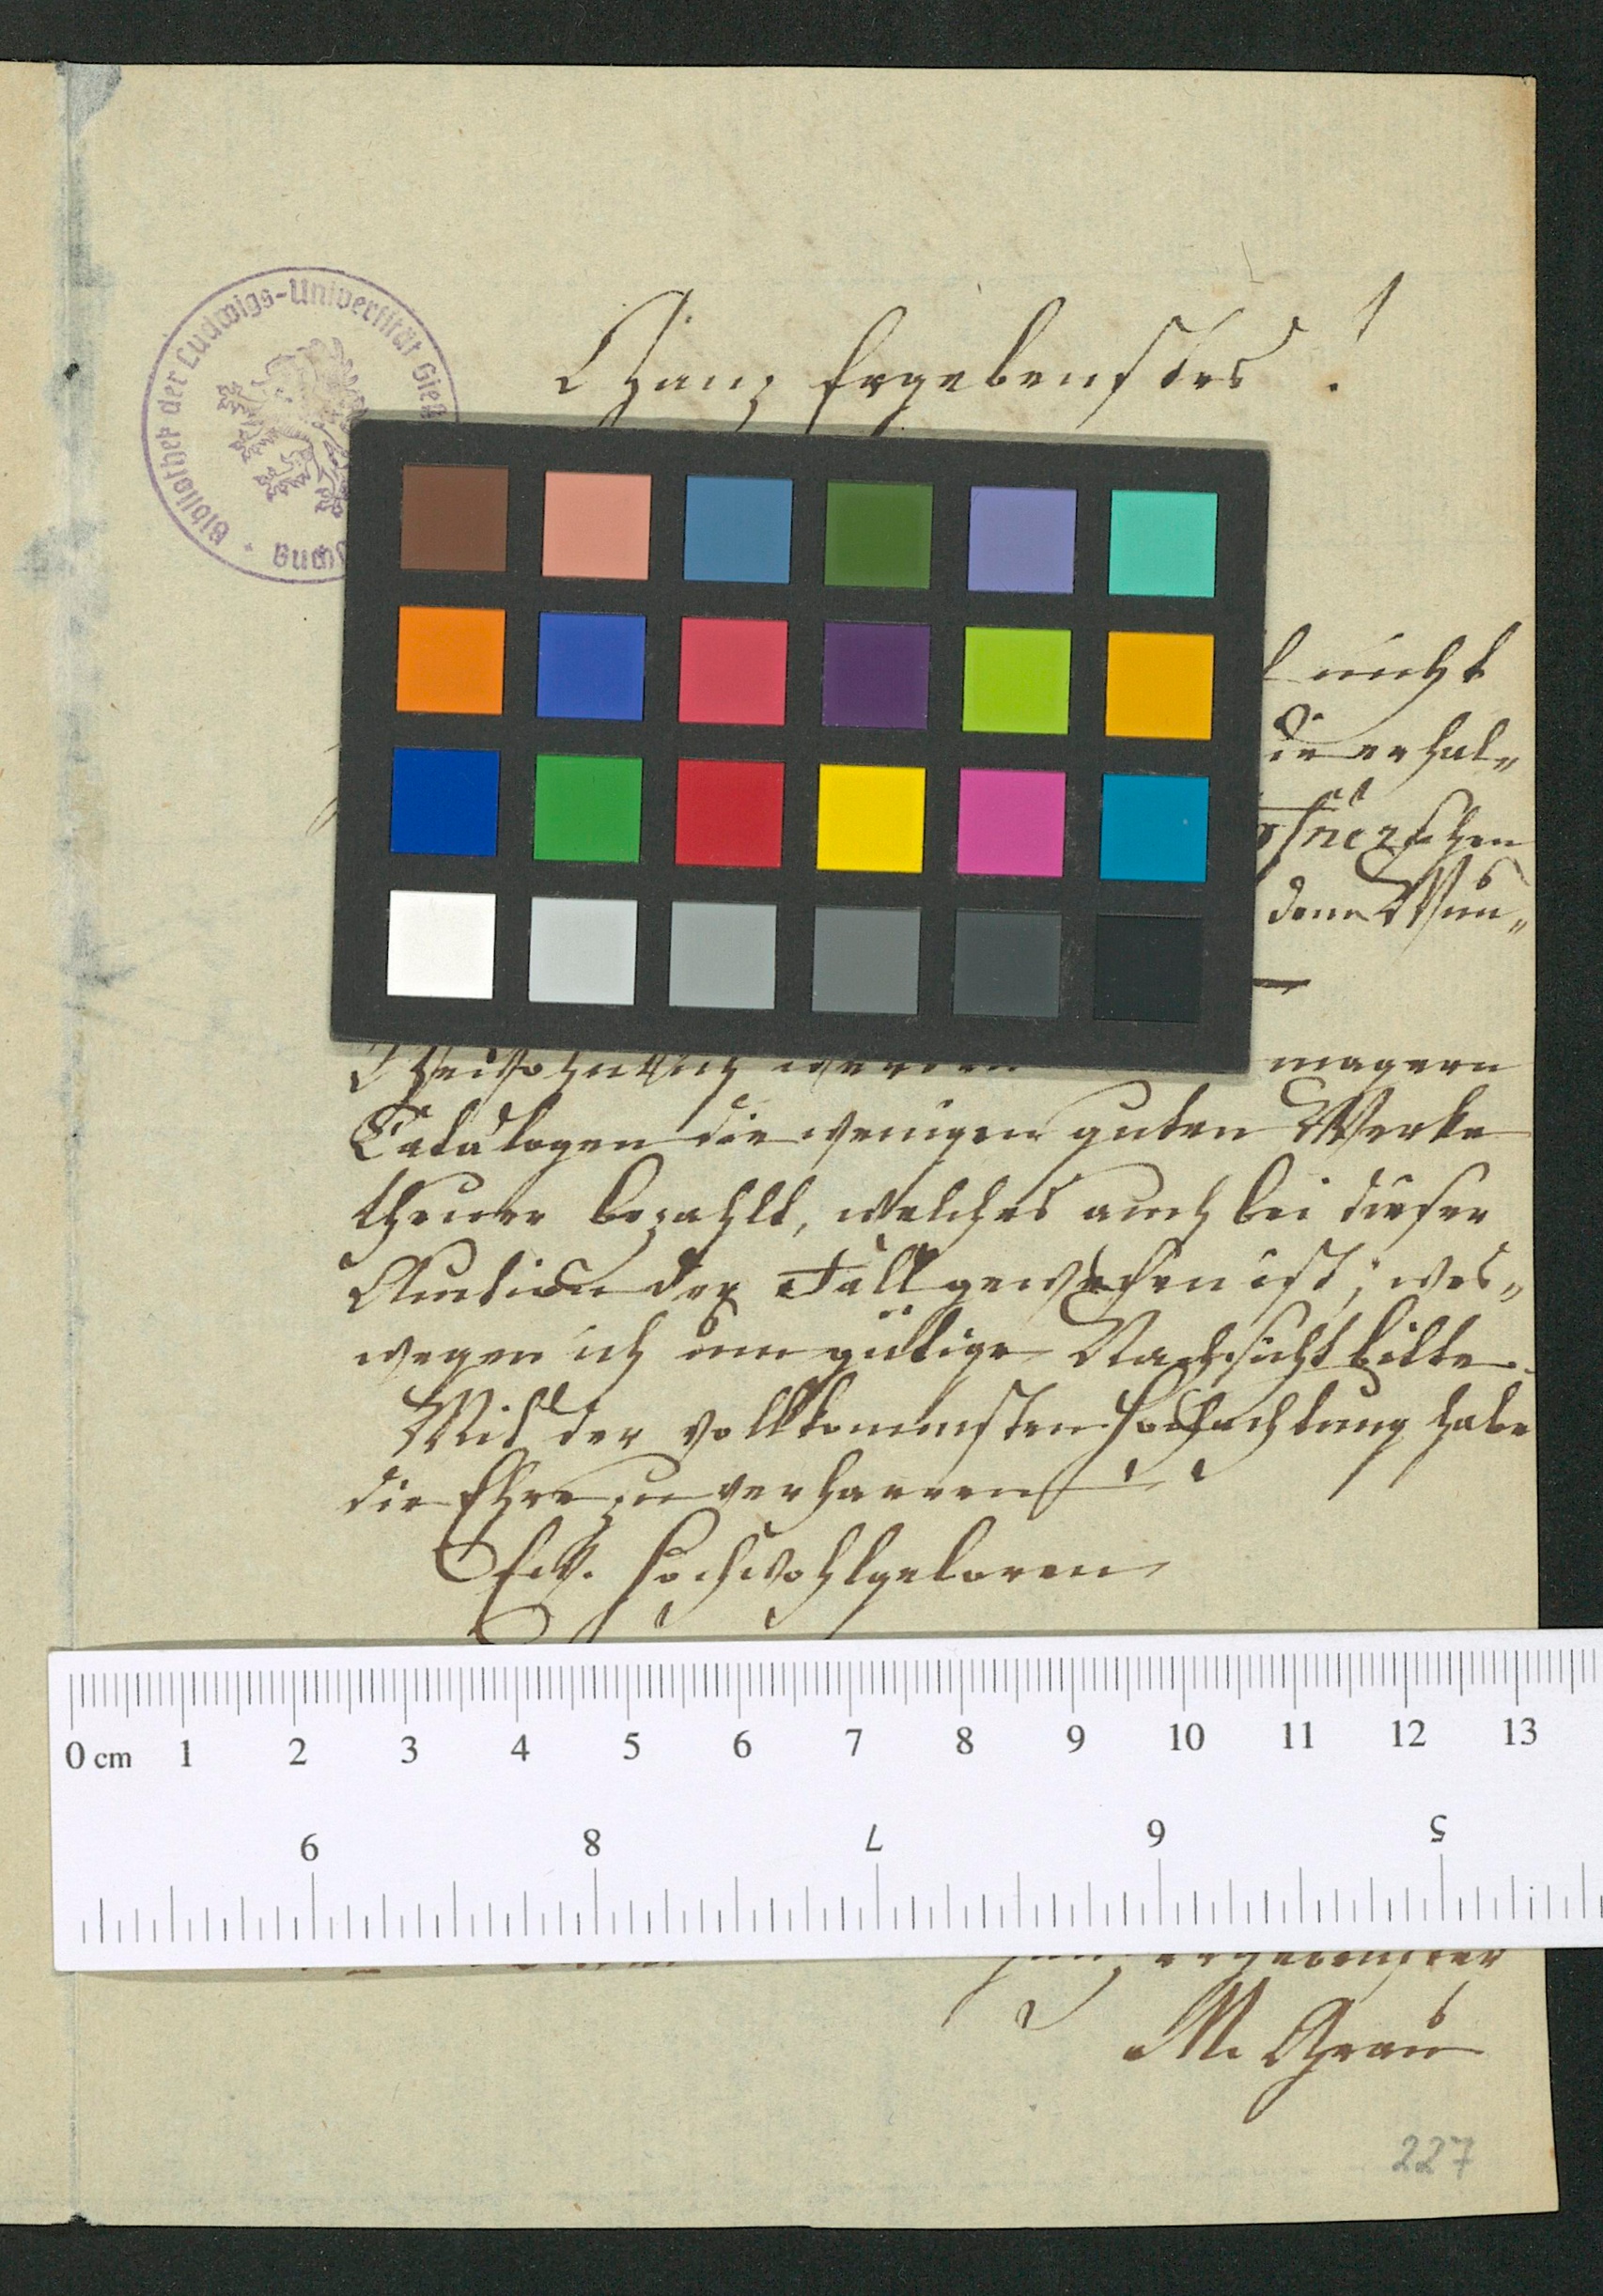 Bibliothek der Ludwigs-Universität Gieß
Ganz Ergebenstes!
nicht
die erhal„
schen
dem Wun„
Gewöhnlich werden magern
Catalogen die wenigen guten Werke
theuer bezahlt, welches auch bei dieser
Auction der Fall gewesen ist; wes„
wegen ich um gütige Nachsicht bitte.
Mit der vollkommsten Hochachtung habe
die Ehre zu verharren
Ew. Hochwohlgeboren
0 cm 1 2 3 4 5 6 7 8 9 10 11 12 13
9 8 7 6 5
ganz ergebenster
M. Grau
227